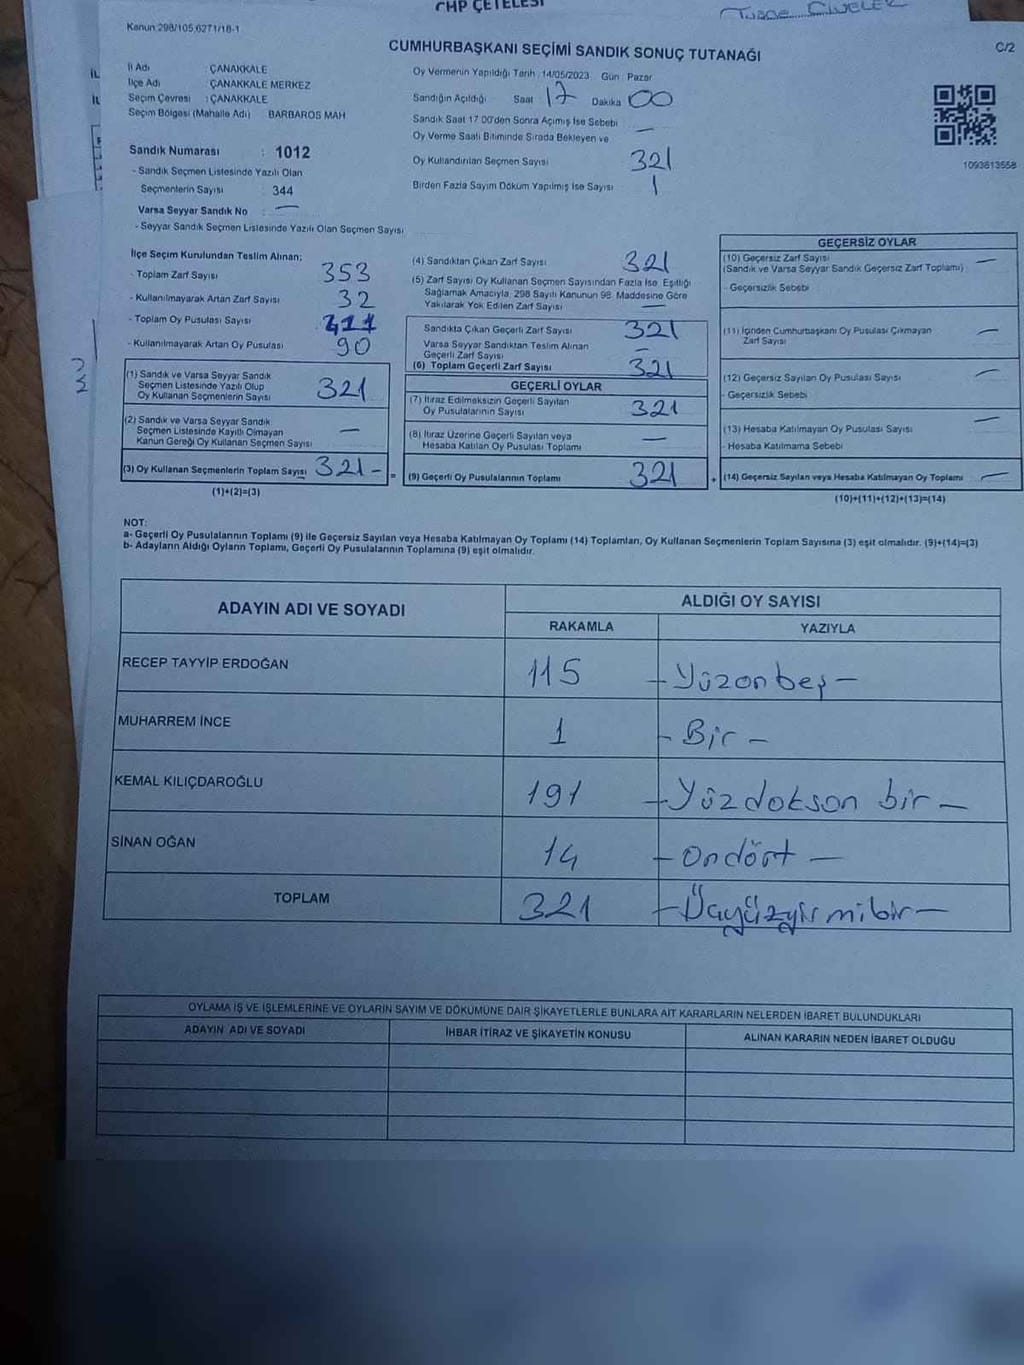 CHP ÇETELESİ
Kanun 298/105,6271/18-1
C/2
CUMHURBAŞKANI SEÇİMİ SANDIK SONUÇ TUTANAĞI
İl Adı : ÇANAKKALE
İlçe Adı : ÇANAKKALE MERKEZ
Seçim Çevresi : ÇANAKKALE
Seçim Bölgesi (Mahalle Adı) BARBAROS MAH
Sandık Numarası : 1012
- Sandık Seçmen Listesinde Yazılı Olan
Seçmenlerin Sayısı : 344
Varsa Seyyar Sandık No : —
- Seyyar Sandık Seçmen Listesinde Yazılı Olan Seçmen Sayısı
Oy Vermenin Yapıldığı Tarih : 14/05/2023 Gün : Pazar
Sandığın Açıldığı Saat 17 Dakika 00
Sandık Saat 17:00'den Sonra Açımış İse Sebebi —
Oy Verme Saati Bitiminde Sırada Bekleyen ve
Oy Kullandırılan Seçmen Sayısı 321
Birden Fazla Sayım Döküm Yapılmış İse Sayısı 1
1093813558
İlçe Seçim Kurulundan Teslim Alınan;
- Toplam Zarf Sayısı 353
- Kullanılmayarak Artan Zarf Sayısı 32
- Toplam Oy Pusulası Sayısı 411
- Kullanılmayarak Artan Oy Pusulası 90
(1) Sandık ve Varsa Seyyar Sandık
Seçmen Listesinde Yazılı Olup
Oy Kullanan Seçmenlerin Sayısı 321
(2) Sandık ve Varsa Seyyar Sandık
Seçmen Listesinde Kayıtlı Olmayan
Kanun Gereği Oy Kullanan Seçmen Sayısı —
(3) Oy Kullanan Seçmenlerin Toplam Sayısı 321 -
(1)+(2)=(3)
(4) Sandıktan Çıkan Zarf Sayısı 321
(5) Zarf Sayısı Oy Kullanan Seçmen Sayısından Fazla İse, Eşitliği
Sağlamak Amacıyla, 298 Sayılı Kanunun 98. Maddesine Göre
Yakılarak Yok Edilen Zarf Sayısı —
Sandıkta Çıkan Geçerli Zarf Sayısı 321
Varsa Seyyar Sandıktan Teslim Alınan
Geçerli Zarf Sayısı —
(6) Toplam Geçerli Zarf Sayısı 321
GEÇERLİ OYLAR
(7) İtiraz Edilmeksizin Geçerli Sayılan
Oy Pusulalarının Sayısı 321
(8) İtiraz Üzerine Geçerli Sayılan veya
Hesaba Katılan Oy Pusulası Toplamı —
= (9) Geçerli Oy Pusulalarının Toplamı 321
GEÇERSİZ OYLAR
(10) Geçersiz Zarf Sayısı —
(Sandık ve Varsa Seyyar Sandık Geçersiz Zarf Toplamı)
- Geçersizlik Sebebi
(11) İçinden Cumhurbaşkanı Oy Pusulası Çıkmayan
Zarf Sayısı —
(12) Geçersiz Sayılan Oy Pusulası Sayısı —
- Geçersizlik Sebebi
(13) Hesaba Katılmayan Oy Pusulası Sayısı —
- Hesaba Katılmama Sebebi
+ (14) Geçersiz Sayılan veya Hesaba Katılmayan Oy Toplamı —
(10)+(11)+(12)+(13)=(14)
NOT:
a- Geçerli Oy Pusulalarının Toplamı (9) ile Geçersiz Sayılan veya Hesaba Katılmayan Oy Toplamı (14) Toplamları, Oy Kullanan Seçmenlerin Toplam Sayısına (3) eşit olmalıdır. (9)+(14)=(3)
b- Adayların Aldığı Oyların Toplamı, Geçerli Oy Pusulalarının Toplamına (9) eşit olmalıdır.
ADAYIN ADI VE SOYADI
ALDIĞI OY SAYISI
RAKAMLA YAZIYLA
RECEP TAYYİP ERDOĞAN 115 - Yüzonbeş -
MUHARREM İNCE 1 - Bir -
KEMAL KILIÇDAROĞLU 191 - Yüzdokson bir -
SİNAN OĞAN 14 - Ondört -
TOPLAM 321 - Üçyüzyirmibir -
OYLAMA İŞ VE İŞLEMLERİNE VE OYLARIN SAYIM VE DÖKÜMÜNE DAİR ŞİKAYETLERLE BUNLARA AİT KARARLARIN NELERDEN İBARET BULUNDUKLARI
ADAYIN ADI VE SOYADI İHBAR İTİRAZ VE ŞİKAYETİN KONUSU ALINAN KARARIN NEDEN İBARET OLDUĞU